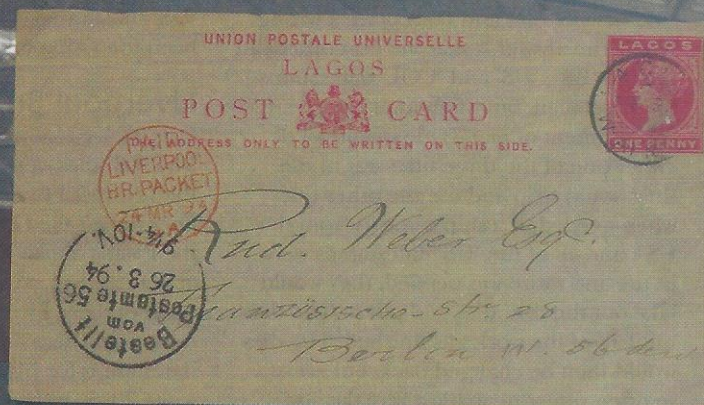 UNION POSTALE UNIVERSELLE
LAGOS
POST CARD
THE ADDRESS ONLY TO BE WRITTEN ON THIS SIDE.
LAGOS
ONE PENNY
PAID
LIVERPOOL
BR. PACKET
24 MR 94
A
Bestellt
vom
Postamte 56
26. 3. 94
9¼-10V.
Rud. Weber Esq.
Französische-Str. 28
Berlin W. 56